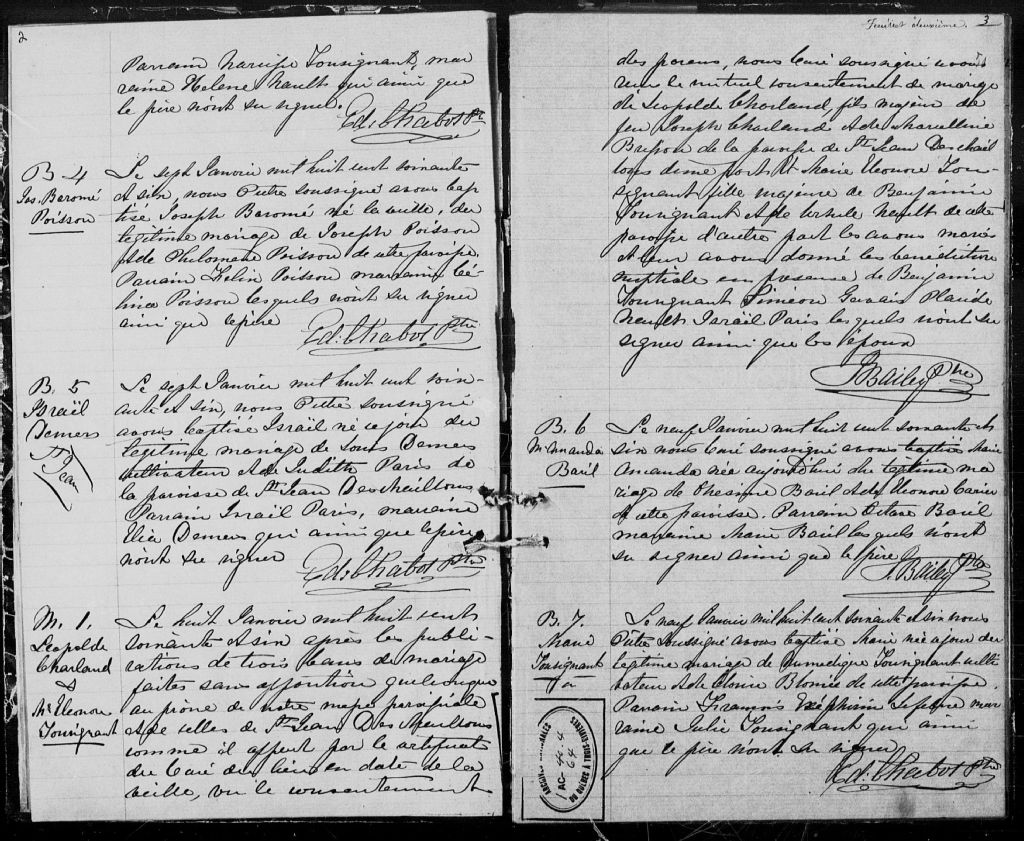 2
Parrain Narcisse Tousignant, mar
raine Helene Nault qui ainsi que
le père n'ont su signer.
Ed: Chabot Ptr
B. 4
Jos. Baromé
Poisson
Le sept Janvier mil huit cent soixante
et six, nous Prêtre soussigné avons bap
tisé Joseph Baromé né la veille, du
legitime mariage de Joseph Poisson
et de Philomene Poisson de cette paroisse.
Parrain Poisson marraine Cé-
lina Poisson lesquels n'ont su signer
ainsi que le père
Ed: Chabot Ptre
B. 5
Israël
Demers
St Jean
Le sept Janvier mil huit cent soix-
ante et six, nous Prêtre soussigné
avons baptisé Israël né ce jour du
legitime mariage de Louis Demers
cultivateur et de Judith Paris de
la paroisse de St Jean Deschaillons
Parrain Israïl Paris, marraine
Demers qui ainsi que le père
n'ont su signer
Ed: Chabot Ptre
M. 1.
Leopolde
Charland
&
Me Eleonore
Tousignant
Le huit Janvier mil huit cents
soixante et six après les publi-
cations de trois bans de mariage
faites sans opposition quelconque
au prône de notre messe paroissiale
et de celles de St Jean Deschaillons
comme il appert par le certificat
du Curé du lieu en date de la
veille, vu le consentement
Feuillet deuxième. 3
des parens, nous Curé soussigné avons
reçu le mutuel consentement de mariage
de Leopolde Charland, fils majeur de
feu Joseph Charland et de Marcelline
Brisson de la paroisse de St Jean Deschail
lons d'une part et Me Marie Eleonore Tou-
signant fille majeure de Benjamin
Tousignant et de Ursule Neault de cette
paroisse d'autre part les avons mariés
et leur avons donné la bénédiction
nuptiale en presence de Benjamin
Tousignant Siméon Gervais Placide
Neault Israël Paris lesquels n'ont su
signer ainsi que les époux
J Bailey Ptre
B. 6
M. Amanda
Baril
Le neuf Janvier mil huit cent soixante et
six nous Curé soussigné avons baptisé Marie
Amanda née aujourd'hui du legitime ma
riage de Onesime Baril et de Eleonore
de cette paroisse. Parrain Octave Baril
marraine Marie Baril lesquels n'ont
su signer ainsi que le père
J. Bailey Ptre
B. 7.
Marie
Tousignant
Le neuf Janvier mil huit cent soixante et six nous
Prêtre soussigné avons baptisé Marie née ce jour du
legitime mariage de Nimedique Tousignant culti
vateur et de de cette paroisse.
Parrain François Lefebvre mar
raine Julie Tousignant qui ainsi
que le père n'ont su signer
Ed: Chabot Ptre
ARCHIVES NATIONALES
AC-4-4
64
DU QUÉBEC À TROIS-RIVIÈRES